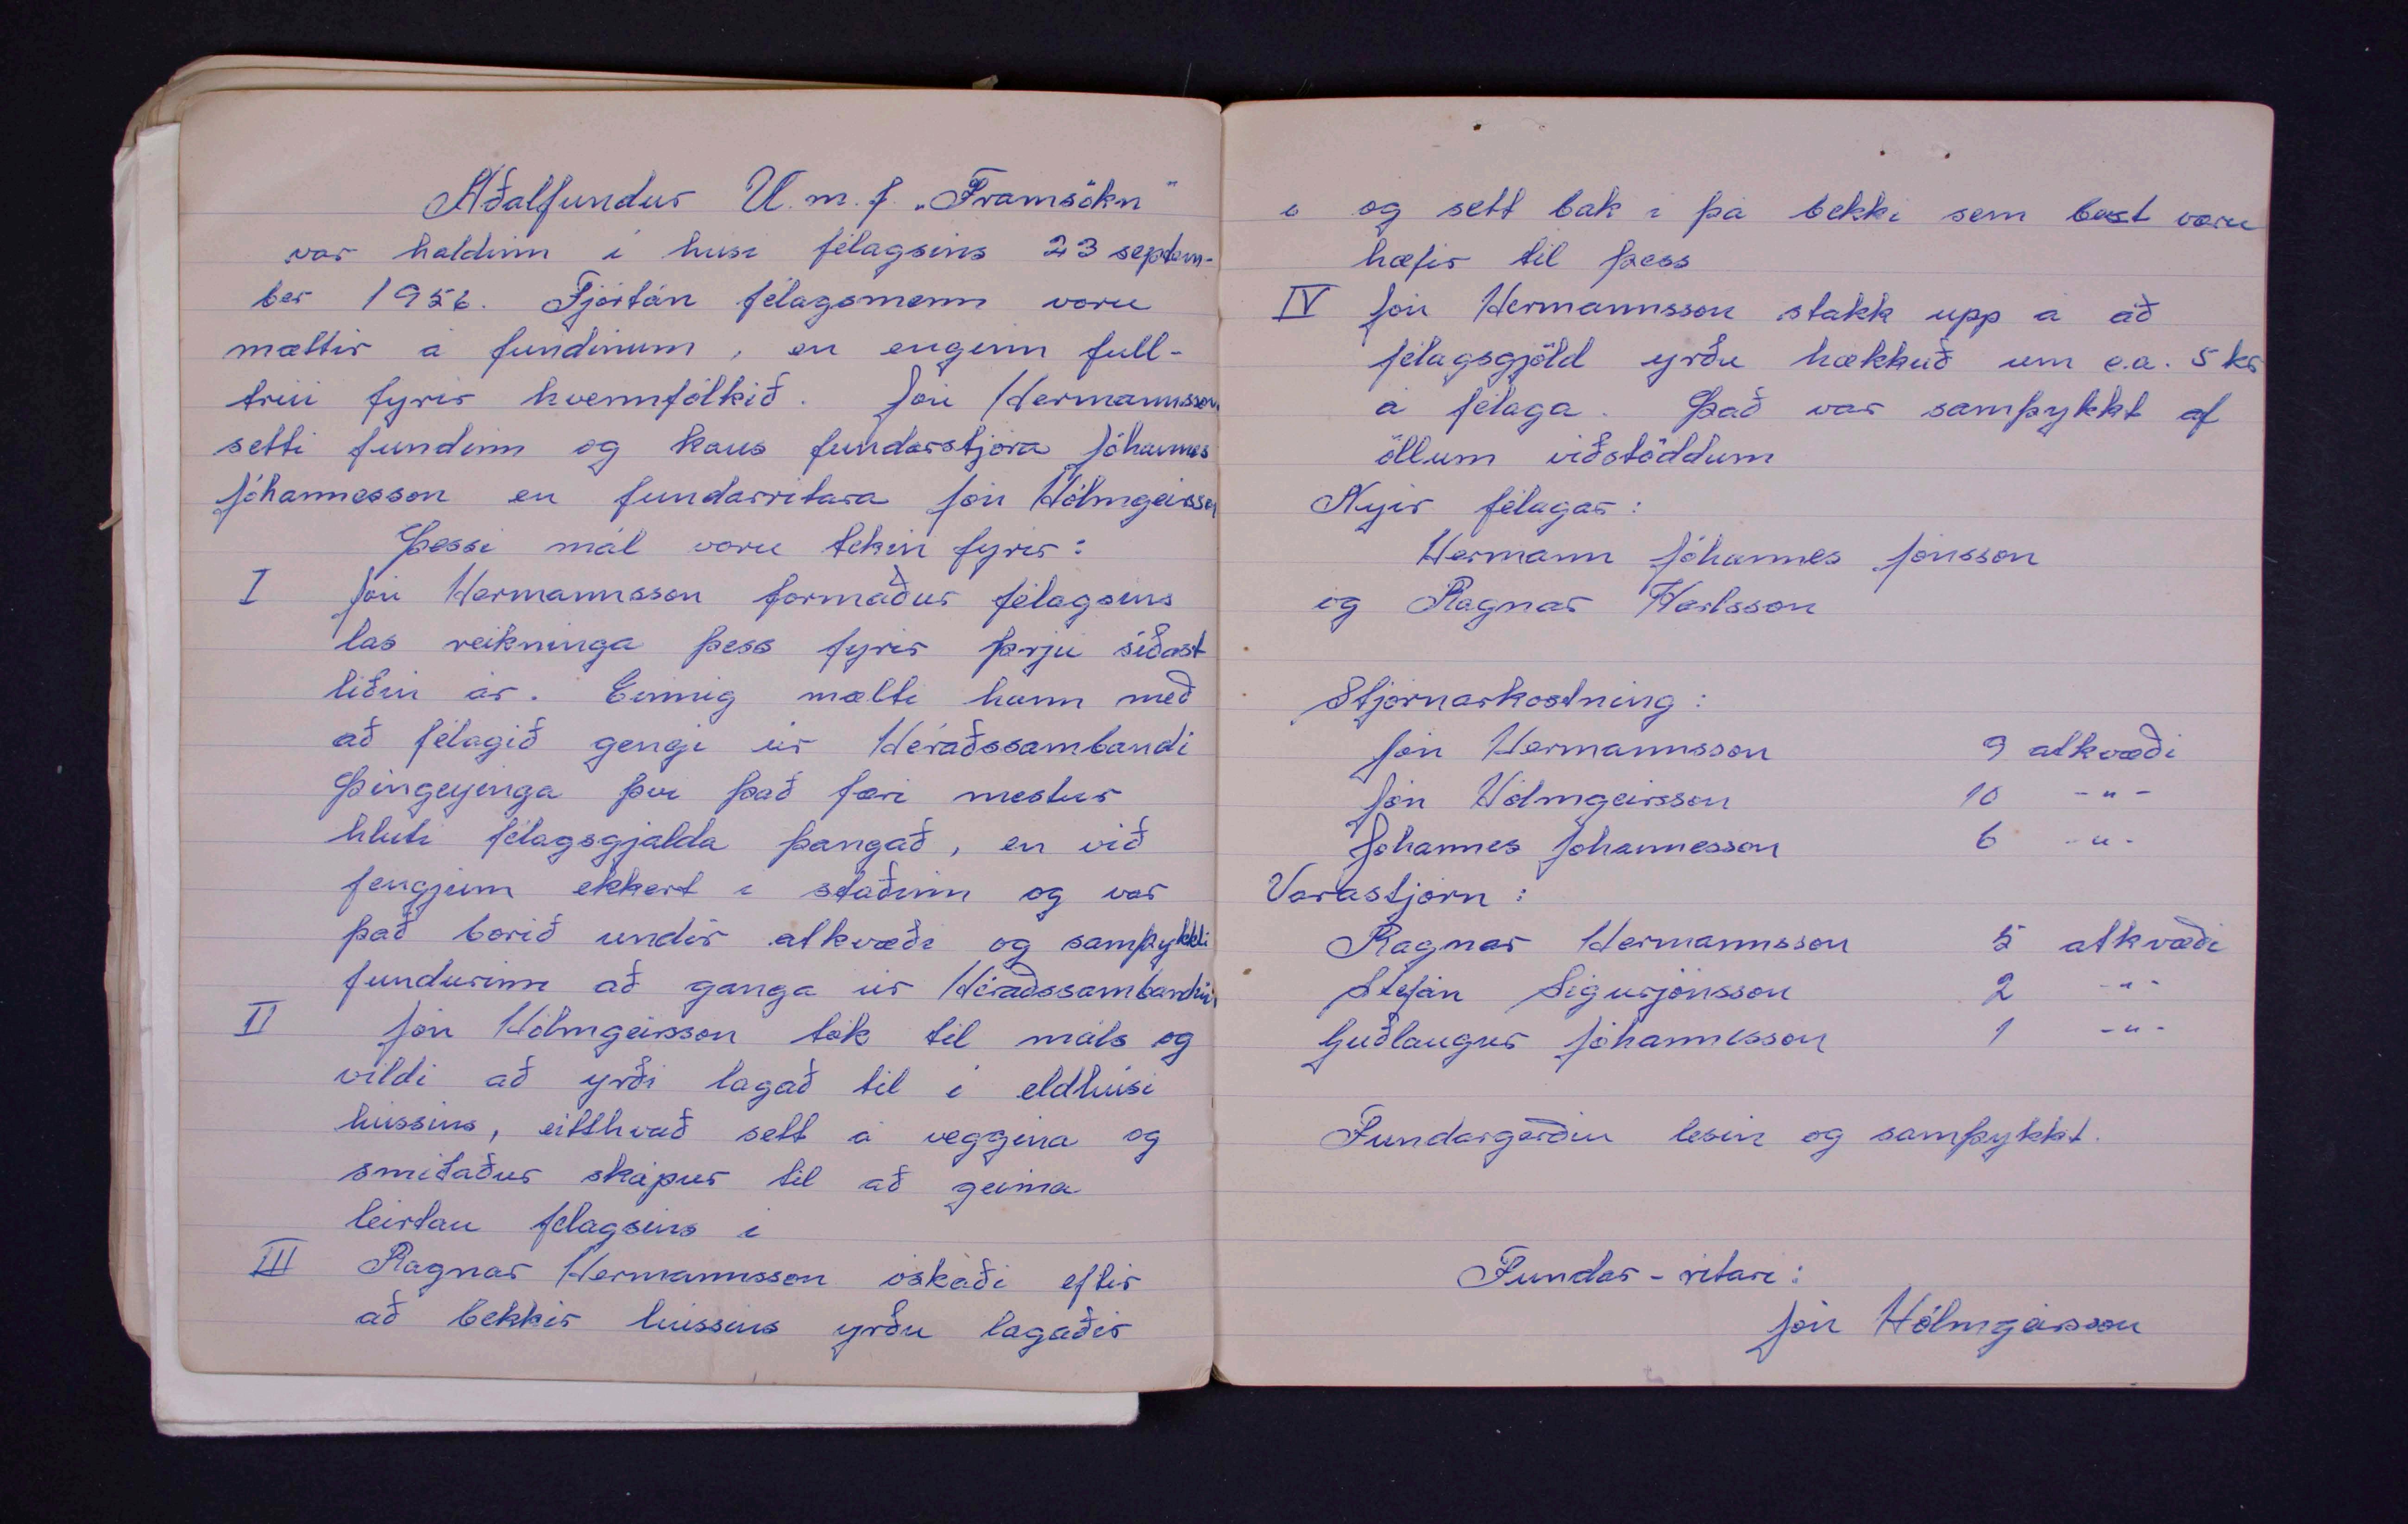 Aðalfundur U.m.f. „Framsókn"
var haldinn í húsi félagsins 23 septem-
ber 1956. Fjórtán félagsmenn voru
mættir á fundinum, en enginn full-
trúi fyrir kvennfólkið. Jón Hermannsson
setti fundinn og kaus fundarstjóra Jóhannes
Jóhannesson en fundarritara Jón Hólmgeirsson
Þessi mál voru tekin fyrir:
I Jón Hermannsson formaður félagsins
las reikninga þess fyrir þrjú síðast
liðin ár. Einnig mælti hann með
að félagið gengi úr Héraðssambandi
Þingeyinga því það færi mestur
hluti félagsgjalda þangað, en við
fengjum ekkert í staðinn og var
það borið undir atkvæði og samþykkti
fundurinn að ganga úr Héraðssambandinu
II Jón Hólmgeirsson tók til máls og
vildi að yrði lagað til í eldhúsi
hússins, eitthvað sett á veggina og
smíðaður skápur til að geima
leirtau félagsins í
III Ragnar Hermannsson óskaði eftir
að bekkir hússins yrðu lagaðir
og sett bak í þá bekki sem best voru
hæfir til þess
IV Jón Hermannsson stakk upp á að
félagsgjöld yrðu hækkuð um c.a. 5 kr
á félaga. Það var samþykkt af
öllum viðstöddum
Nýir félagar:
Hermann Jóhannes Jónsson
og Ragnar Karlsson
Stjórnarkostning:
Jón Hermannsson 9 atkvæði
Jón Hólmgeirsson 10 -"-
Jóhannes Jóhannesson 6 -"-
Varastjórn:
Ragnar Hermannsson 5 atkvæði
Stefán Sigurjónsson 2 -"-
Guðlaugur Jóhannesson 1 -"-
Fundargerðin lesin og samþykkt.
Fundar-ritari:
Jón Hólmgeirsson